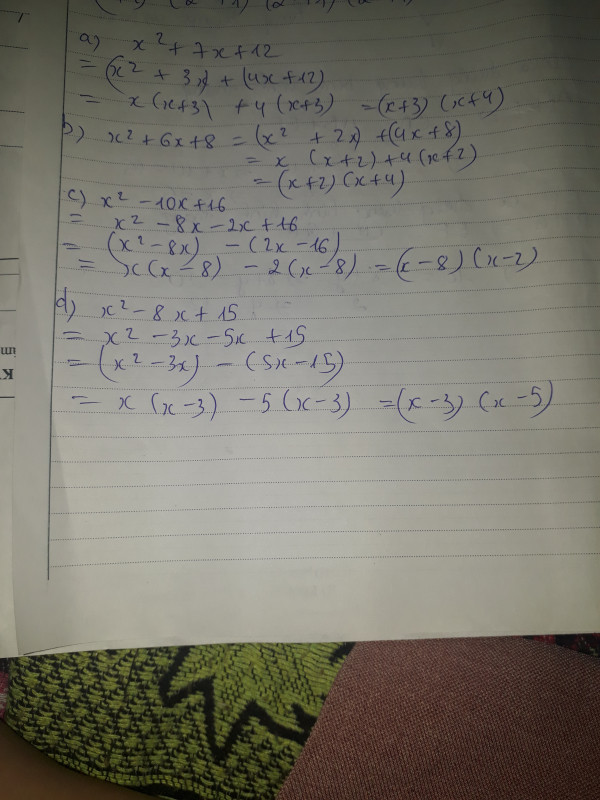 a) x² + 7x + 12
= (x² + 3x) + (4x + 12)
= x(x+3) + 4(x+3) = (x+3)(x+4)
b) x² + 6x + 8 = (x² + 2x) + (4x + 8)
= x (x+2) + 4(x+2)
= (x+2)(x+4)
c) x² - 10x + 16
= x² - 8x - 2x + 16
= (x² - 8x) - (2x - 16)
= x(x - 8) - 2(x - 8) = (x - 8)(x - 2)
d) x² - 8x + 15
= x² - 3x - 5x + 15
= (x² - 3x) - (5x - 15)
= x (x - 3) - 5(x - 3) = (x - 3)(x - 5)